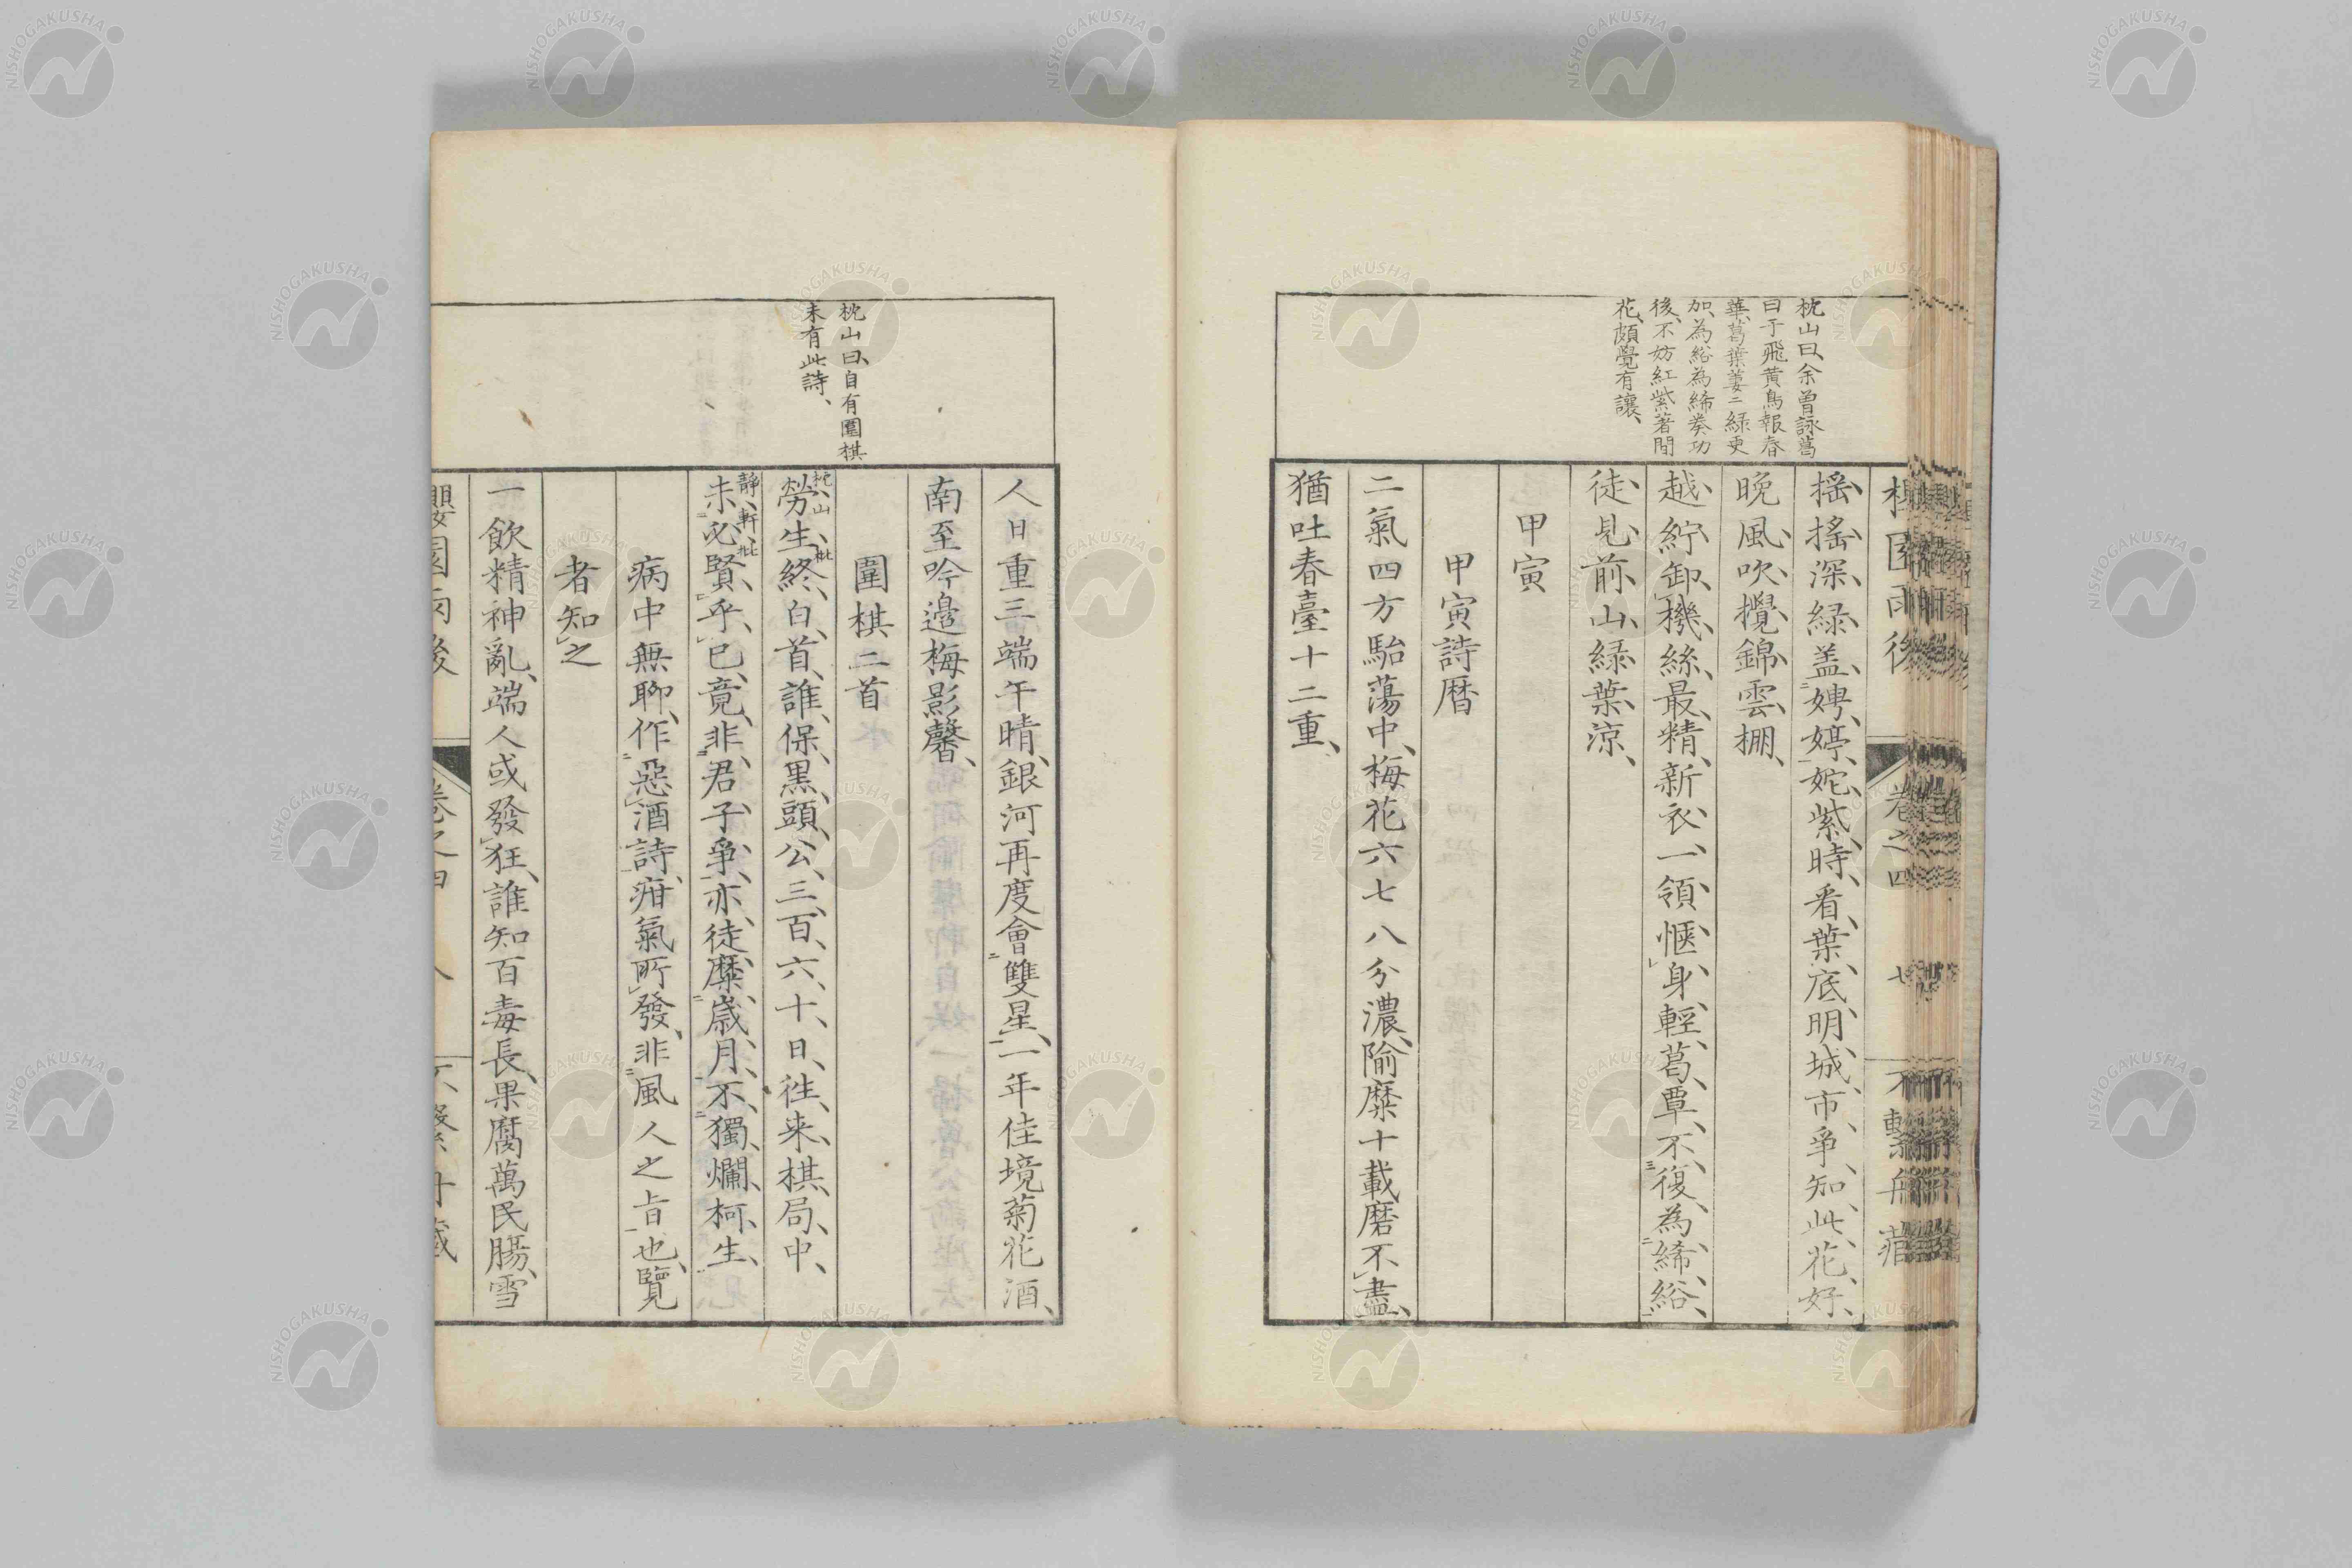 枕山曰、余曾詠葛
曰于飛黃鳥報春
華、葛葉萋二綠更
加、為綌為絺奏功
後、不妨紅紫著閒
花、頗覺有讓、
卷之四　七　不繫舟藏
搖搖深綠蓋娉婷、姹紫時看葉底明、城市爭知此花好、
晚風吹攪錦雲棚、
越紵卸機絲最精、新衣一領愜身輕、葛覃不復為絺綌、
徒見前山綠葉涼、
甲寅
甲寅詩曆
二氣四方駘蕩中、梅花六七八分濃、隃麋十載磨不盡、
猶吐春臺十二重、
枕山曰、自有圍棋
未有此詩、
人日重三端午晴、銀河再度會雙星、一年佳境菊花酒、
南至吟邊梅影馨、
圍棋二首
枕山批
勞生終白首、誰保黑頭公、三百六十日、往来棋局中、
靜軒批
未必賢乎已、竟非君子爭、亦徒糜歲月、不獨爛柯生、
病中無聊、作惡酒詩、疳氣所發、非風人之旨也、覽
者知之
一飲精神亂、端人或發狂、誰知百毒長、果腐萬民腸、雪